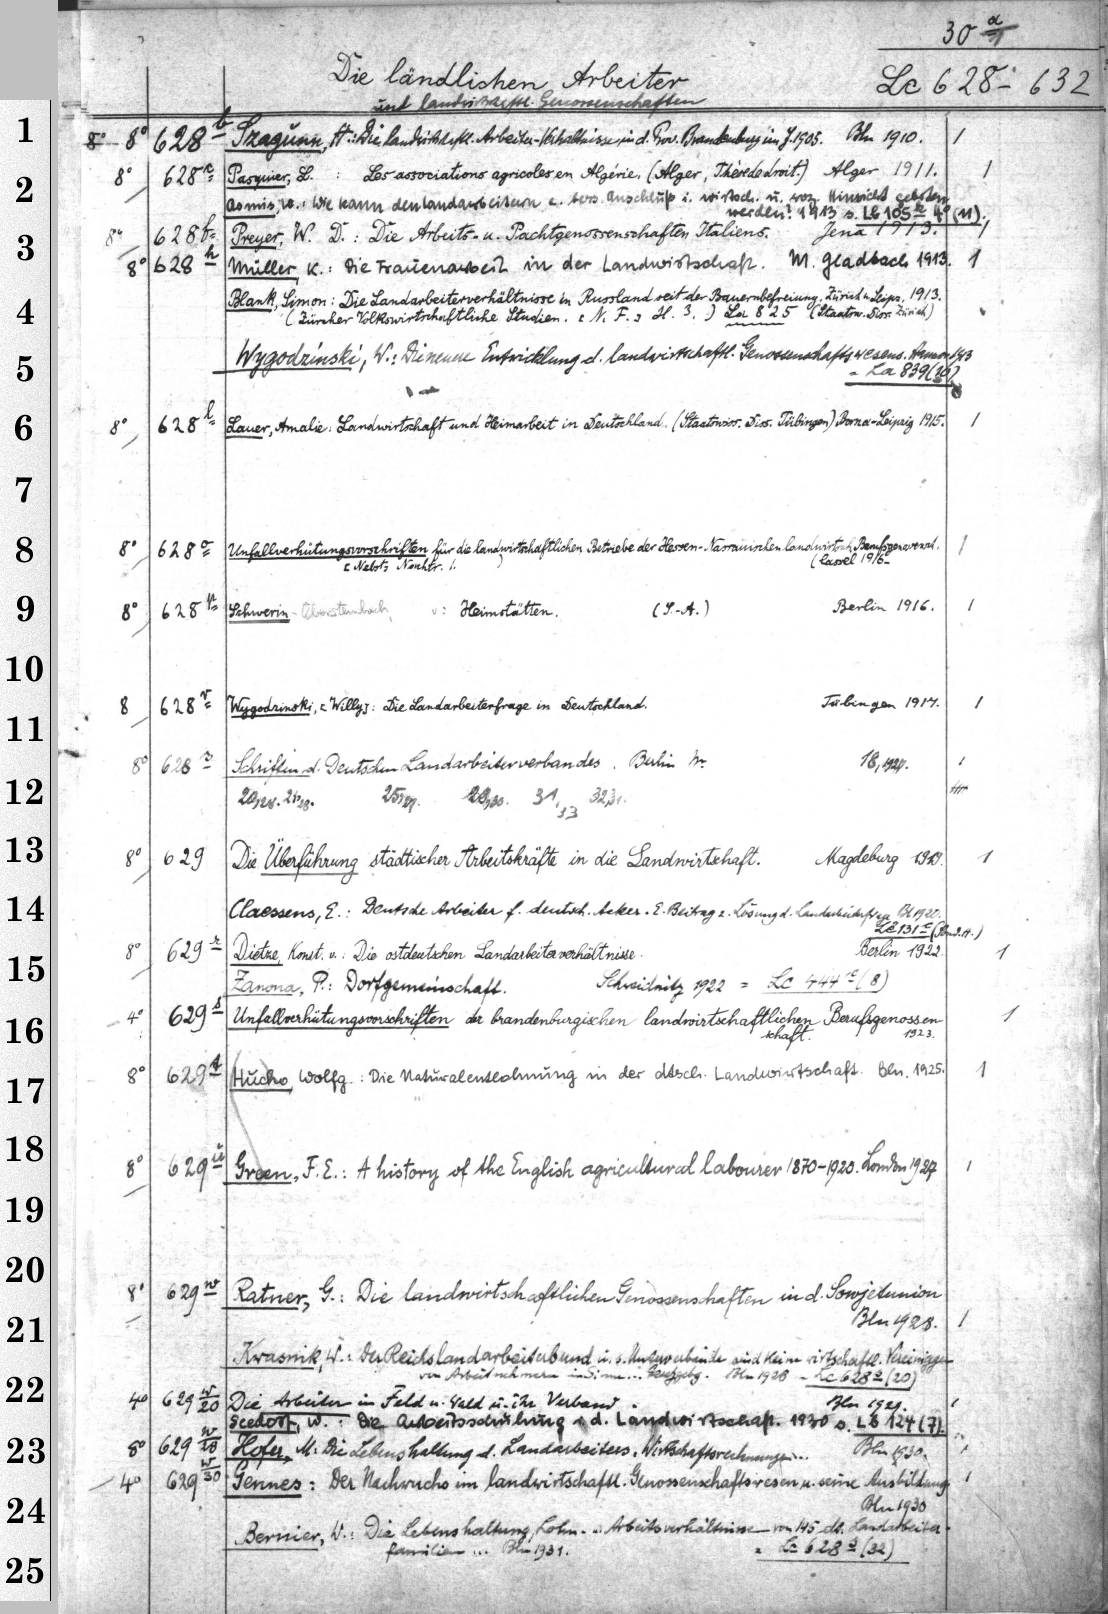 30 a
Die ländlichen Arbeiter
Lc 628 - 632
und landwirtschaftl. Genossenschaften
1
8° 8° 628 b Szagunn, H.: Die landwirtschftl. Arbeiter-Verhältnisse in d. Prov. Brandenburg im J. 1905. Bln 1910. 1
8° 628 Pasquier, L. : Les associations agricoles en Algérie. (Alger, Thèse de droit.) Alger 1911. 1
2
Asmis, W.: Wie kann den Landarbeitern bes. Anschluß i. wirtsch. u. soz. Hinsicht geboten
werden? 1913 s. Lb 105 4° (11).
8° 628 f Preyer, W. D.: Die Arbeits- u. Pachtgenossenschaften Italiens. Jena 1913. 1
3
8° 628 h Müller, K.: Die Frauenarbeit in der Landwirtschaft. M. Gladbach 1913. 1
Blank, Simon: Die Landarbeiterverhältnisse in Russland seit der Bauernbefreiung. Zürich u. Leipz. 1913.
4
(Zürcher Volkswirtschaftliche Studien. [N. F.] H. 3.) La 825 (Staatsw. Diss. Zürich)
Wygodzinski, W.: Die neuere Entwicklung d. landwirtschaftl. Genossenschaftswesens. Hannov. 1913
5
= La 839 (10)
6
8° 628 l Lauer, Amalie: Landwirtschaft und Heimarbeit in Deutschland. (Staatswiss. Diss. Tübingen) Borna-Leipzig 1915. 1
7
8
8° 628 o Unfallverhütungsvorschriften für die landwirtschaftlichen Betriebe der Hessen-Nassauischen landwirtsch. Berufsgenossensch.
[Nebst] Nachtr. 1. Cassel 1916 1
9
8° 628 Schwerin v: Heimstätten. (S.-A.) Berlin 1916. 1
10
8 628 v Wygodzinski, [Willy]: Die Landarbeiterfrage in Deutschland. Tübingen 1917. 1
11
8° 628 Schriften d. Deutschen Landarbeiterverbandes. Berlin Nr. 18, 1924. 1
12
13
8° 629 Die Überführung städtischer Arbeitskräfte in die Landwirtschaft. Magdeburg 1919. 1
14
Claessens, E.: Deutsche Arbeiter f. deutsch. Acker. E. Beitrag z. Lösung d. Landarbeiterfrage Bl 1920.
Lc 131
8° 629 r Dietze, Konst. v.: Die ostdeutschen Landarbeiterverhältnisse. Berlin 1922. 1
15
Zanona, P.: Dorfgemeinschaft. Schweidnitz 1922 = Lc 444 (8)
16
4° 629 s Unfallverhütungsvorschriften der brandenburgischen landwirtschaftlichen Berufsgenossen
schaft. 1923. 1
17
8° 629 t Hucho, Wolfg.: Die Naturalentlohnung in der dtsch. Landwirtschaft. Bln. 1925. 1
18
8° 629 u Green, F. E.: A history of the English agricultural labourer 1870-1920. London 1927 1
19
20
8° 629 w Ratner, G.: Die landwirtschaftlichen Genossenschaften in d. Sowjetunion
Bln 1928. 1
21
Krasnik, W.: Der Reichslandarbeiterbund u. s. Unterverbände sind keine wirtschaftl. Vereinigungen
von Arbeitnehmern im Sinne... Bln 1928 = Lc 628 (20)
22
4° 629 w/20 Die Arbeiter in Feld u. Wald u. ihr Verband. Bln 1929. 1
Seedorf, W.: Die Arbeitsschulung i. d. Landwirtschaft. 1930 s. Lb 124 (7).
23
8° 629 Hofer, M: Die Lebenshaltung d. Landarbeiters. Wirtschaftsrechnungen... Bln 1930.
4° 629 w/30 Gennes: Der Nachwuchs im landwirtschaftl. Genossenschaftswesen u. seine Ausbildung
Bln 1930 1
24
Bernier, W.: Die Lebenshaltung, Lohn- u. Arbeitsverhältnisse von 145 dt. Landarbeiter-
familien ... Bln 1931. = Lc 628 (32)
25